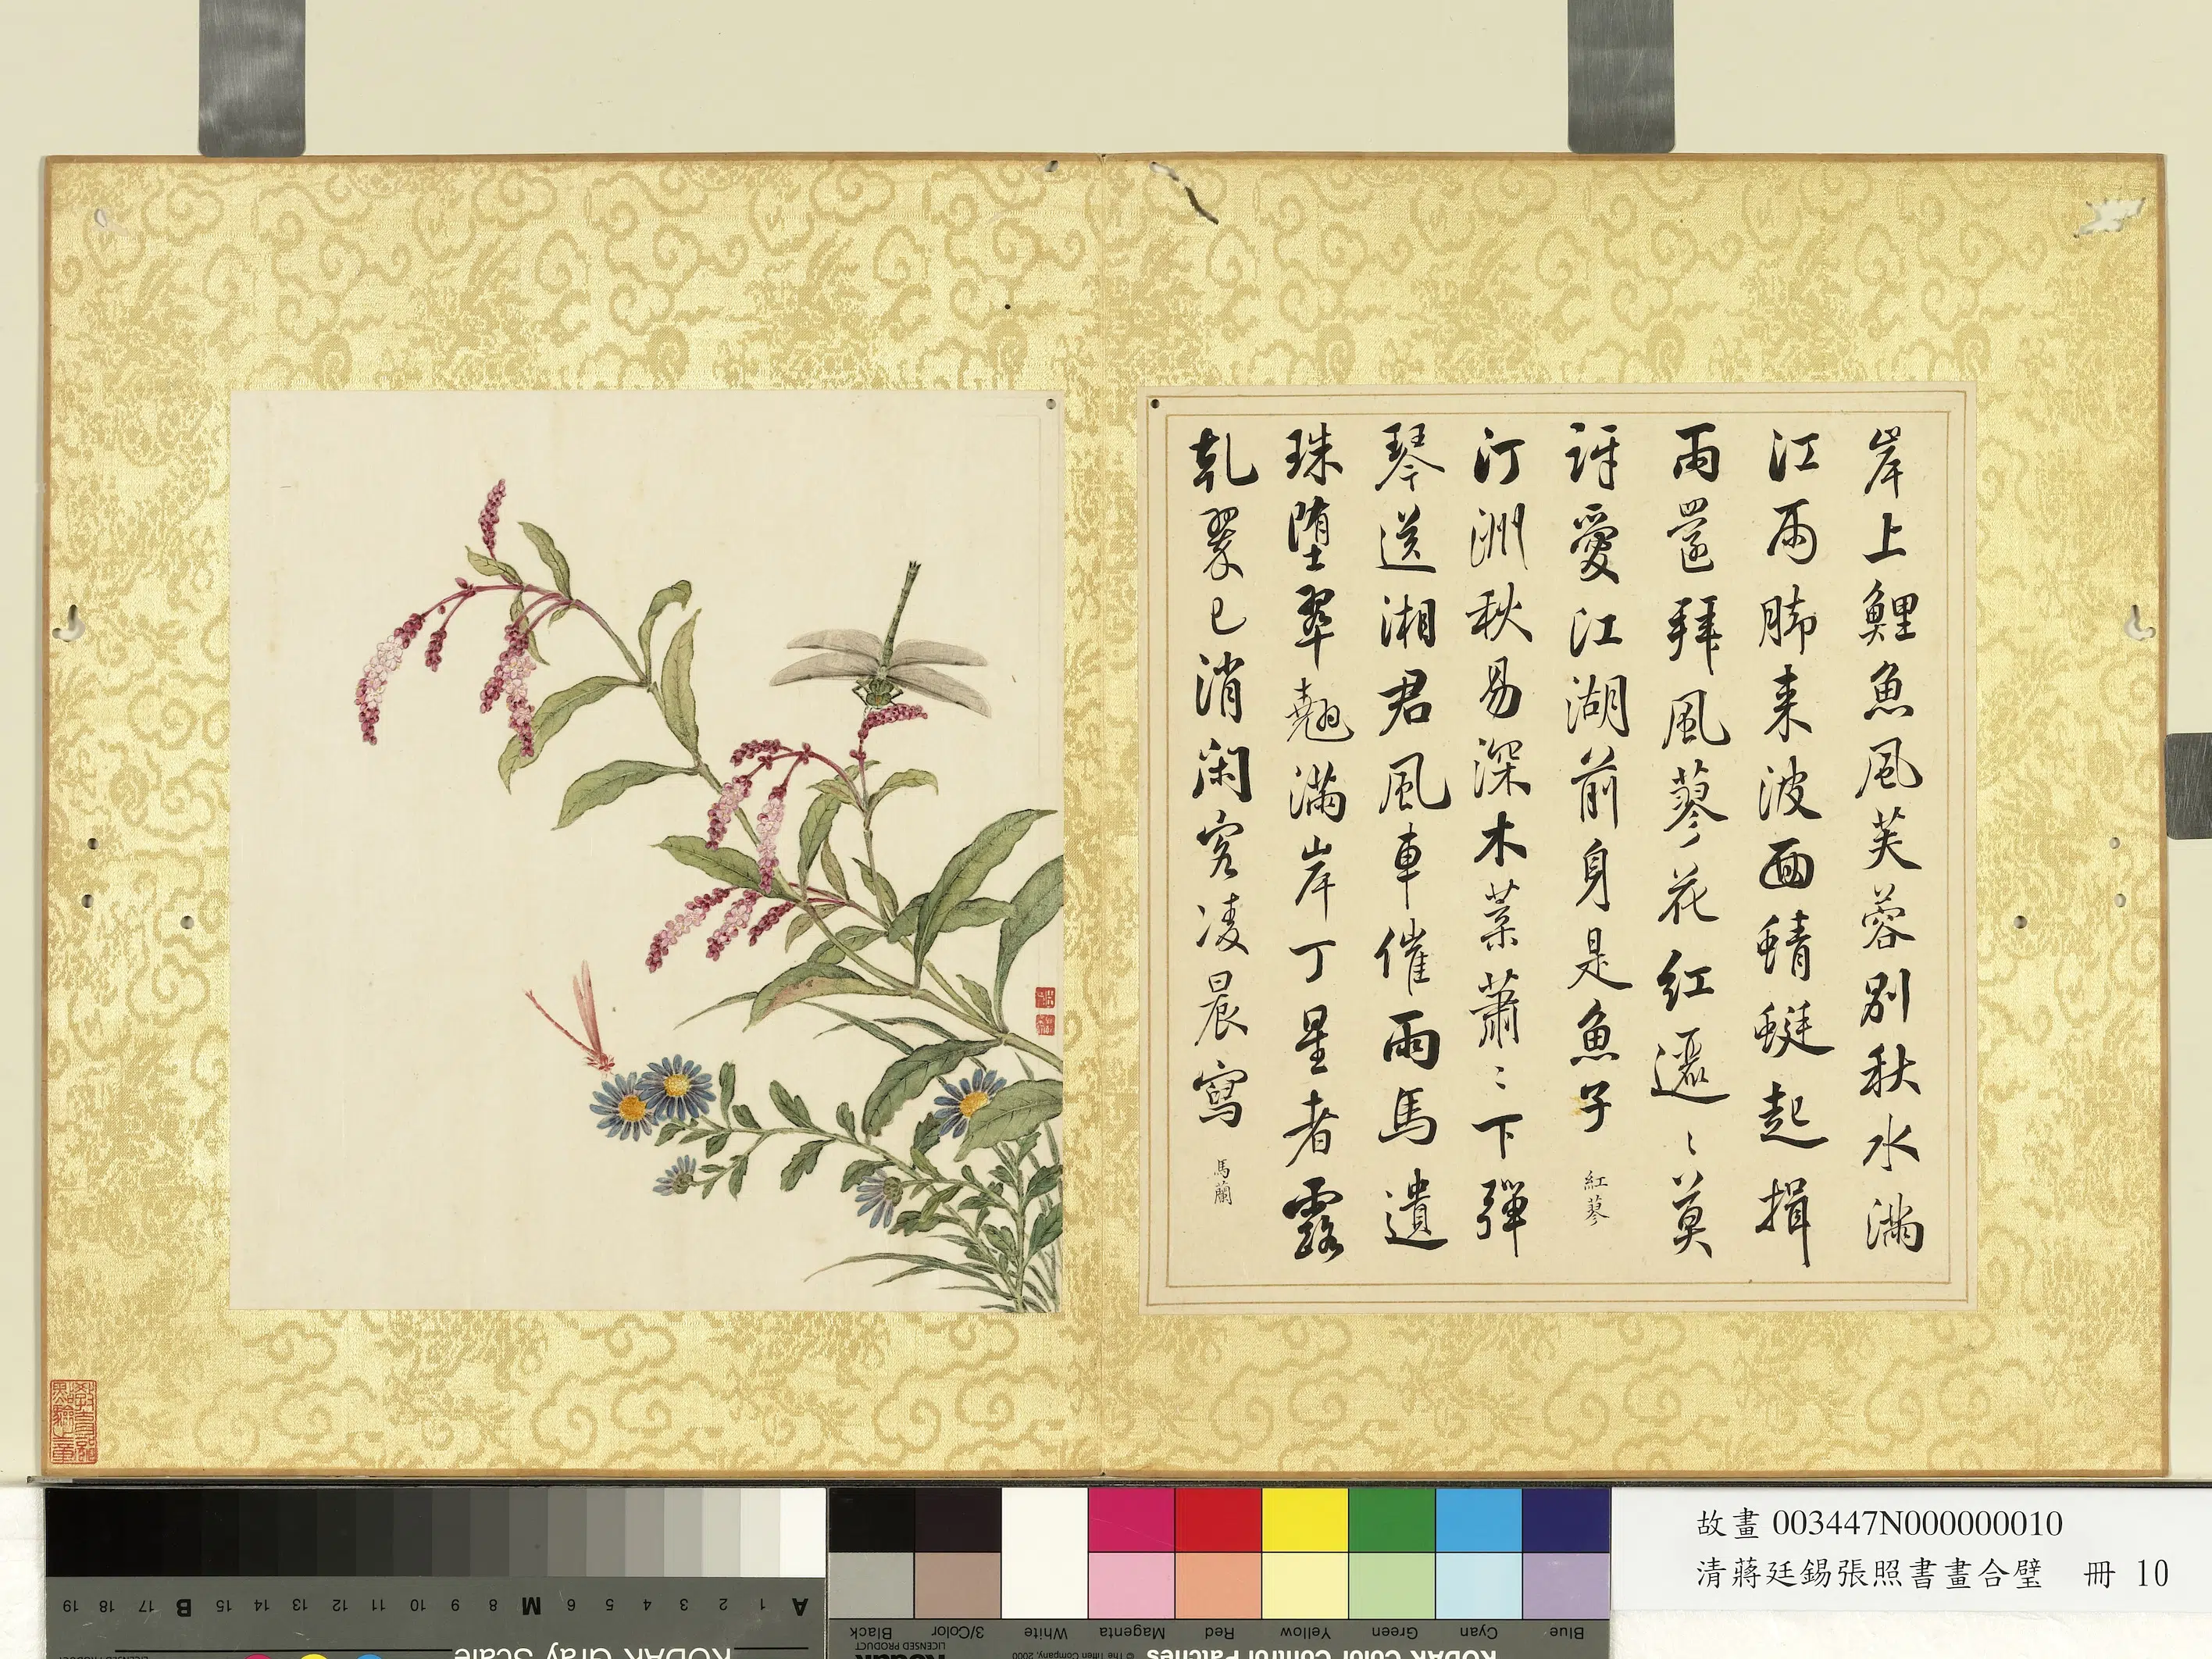 岸上鯉魚風芙蓉別秋水滿
江雨腳来波面蜻蜓起揖
雨還拜風蓼花紅邐〻莫
訝愛江湖前身是魚子 紅蓼
汀洲秋易深木葉蕭〻下彈
琴送湘君風車催雨馬遺
珠堕翠翹滿岸丁星者露
乾翠已消閑窓凌晨寫 馬蘭
故畫 003447N000000010
清蔣廷錫張照書畫合璧 冊 10
19 18 17 B 15 14 13 12 11 10 9 8 M 6 5 4 3 2 1 A
KODAK Gray Scale
Black 3/Color White Magenta Red Yellow Green Cyan Blue
KODAK Color Control Patches
Kodak
LICENSED PRODUCT
© The Tiffen Company, 2000